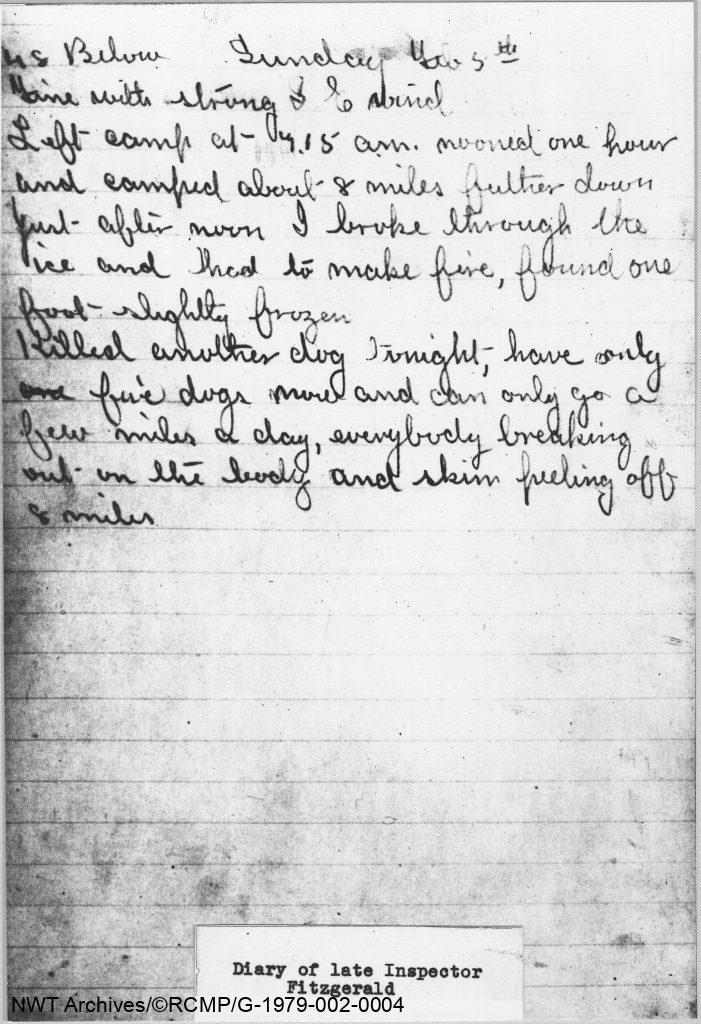 48 Below Sunday Feb 5th
Fine with strong S E wind
Left camp at 7.15 a.m. nooned one hour
and camped about 8 miles futher down
Just after noon I broke through the
ice and had to make fire, found one
foot slightly frozen
Killed another dog tonight, have only
five dogs now and can only go a
few miles a day, everybody breaking
out on the body and skin peeling off
8 miles
Diary of late Inspector
Fitzgerald
NWT Archives/©RCMP/G-1979-002-0004